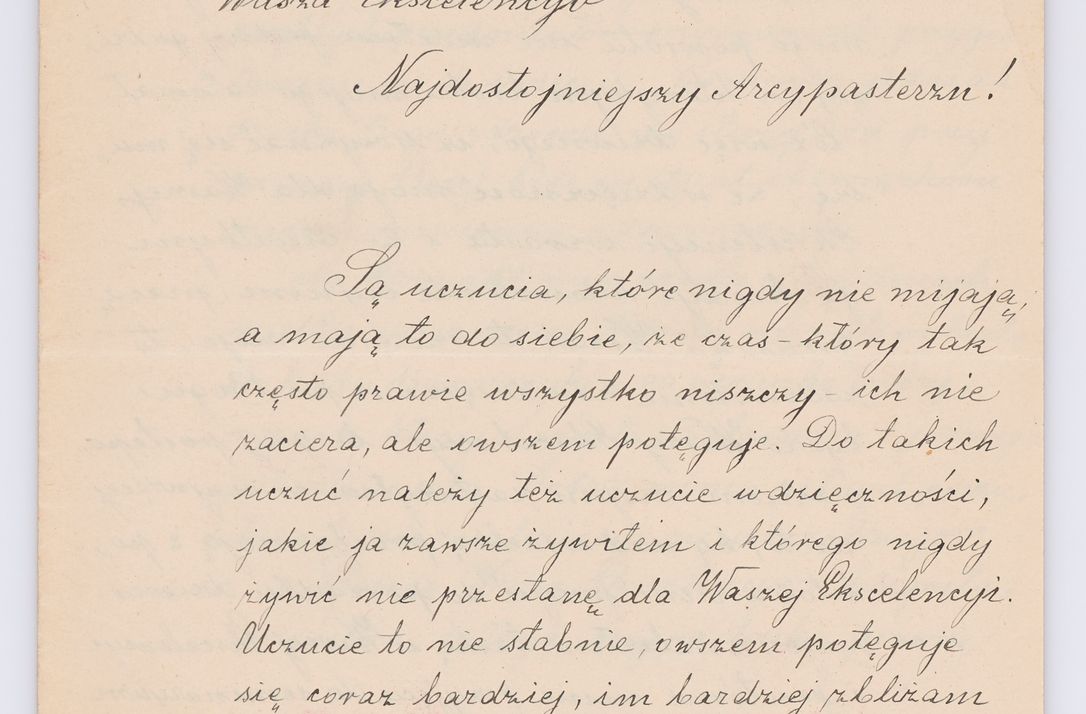 Wasza Ekscelencyo
Najdostojniejszy Arcypasterzu!
Są uczucia, które nigdy nie mijają,
a mają to do siebie, że czas - który tak
często prawie wszystko niszczy - ich nie
zaciera, ale owszem potęguje. Do takich
uczuć należy też uczucie wdzięczności,
jakie ja zawsze żywiłem i którego nigdy
żywić nie przestanę dla Waszej Ekscelencyi.
Uczucie to nie słabnie, owszem potęguje
się coraz bardziej, im bardziej zbliżam